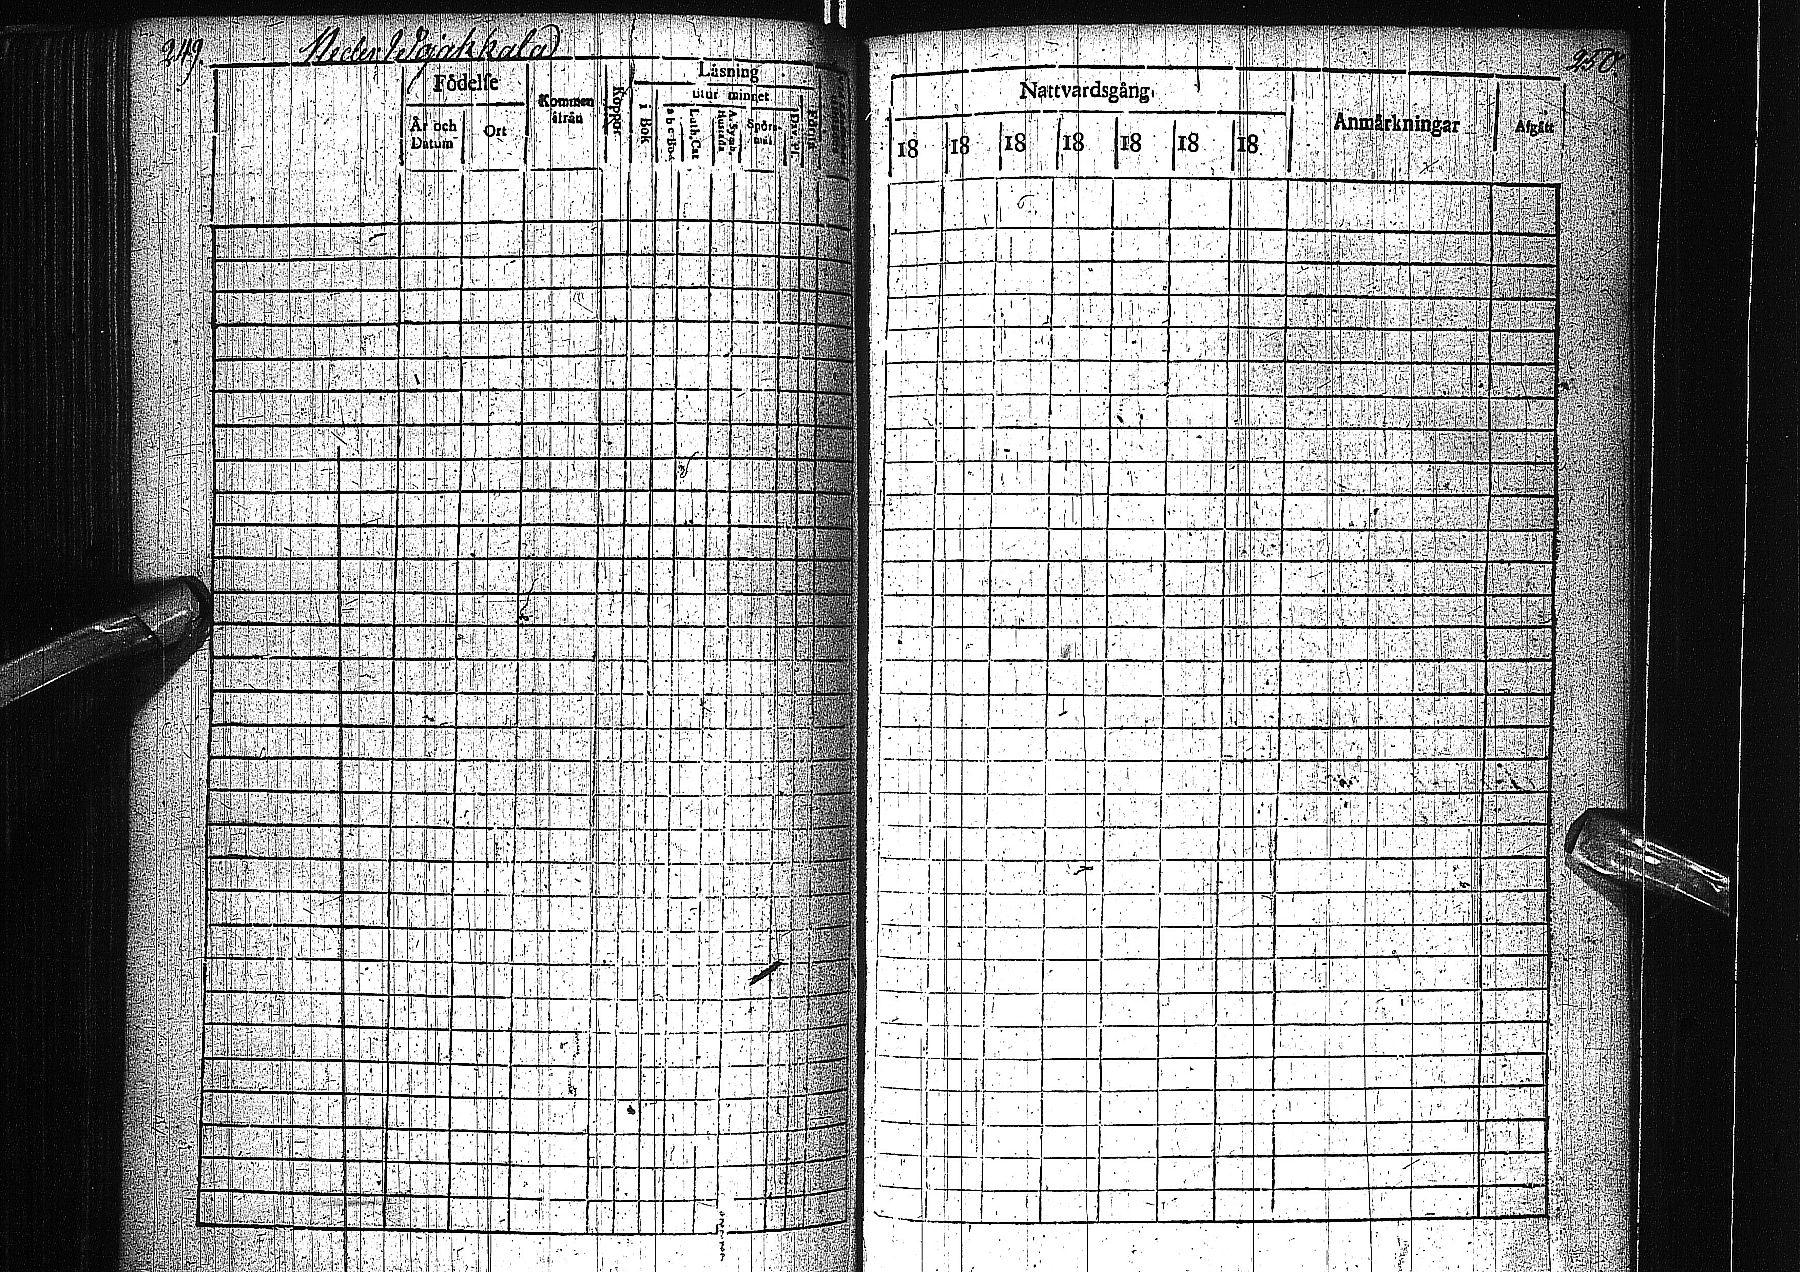 249.
Födelse
Läsning
Kommen
ifrån
Koppor
utur minnet
År och
Datum
Ort
i Bok
a b c-Bok
Luth. Cat
A. Symb.
Hustafla
Spörs-
mål
Dav. Ps.
250
Nattvardsgång.
Anmärkningar
Afgått
18 18 18 18 18 18 18